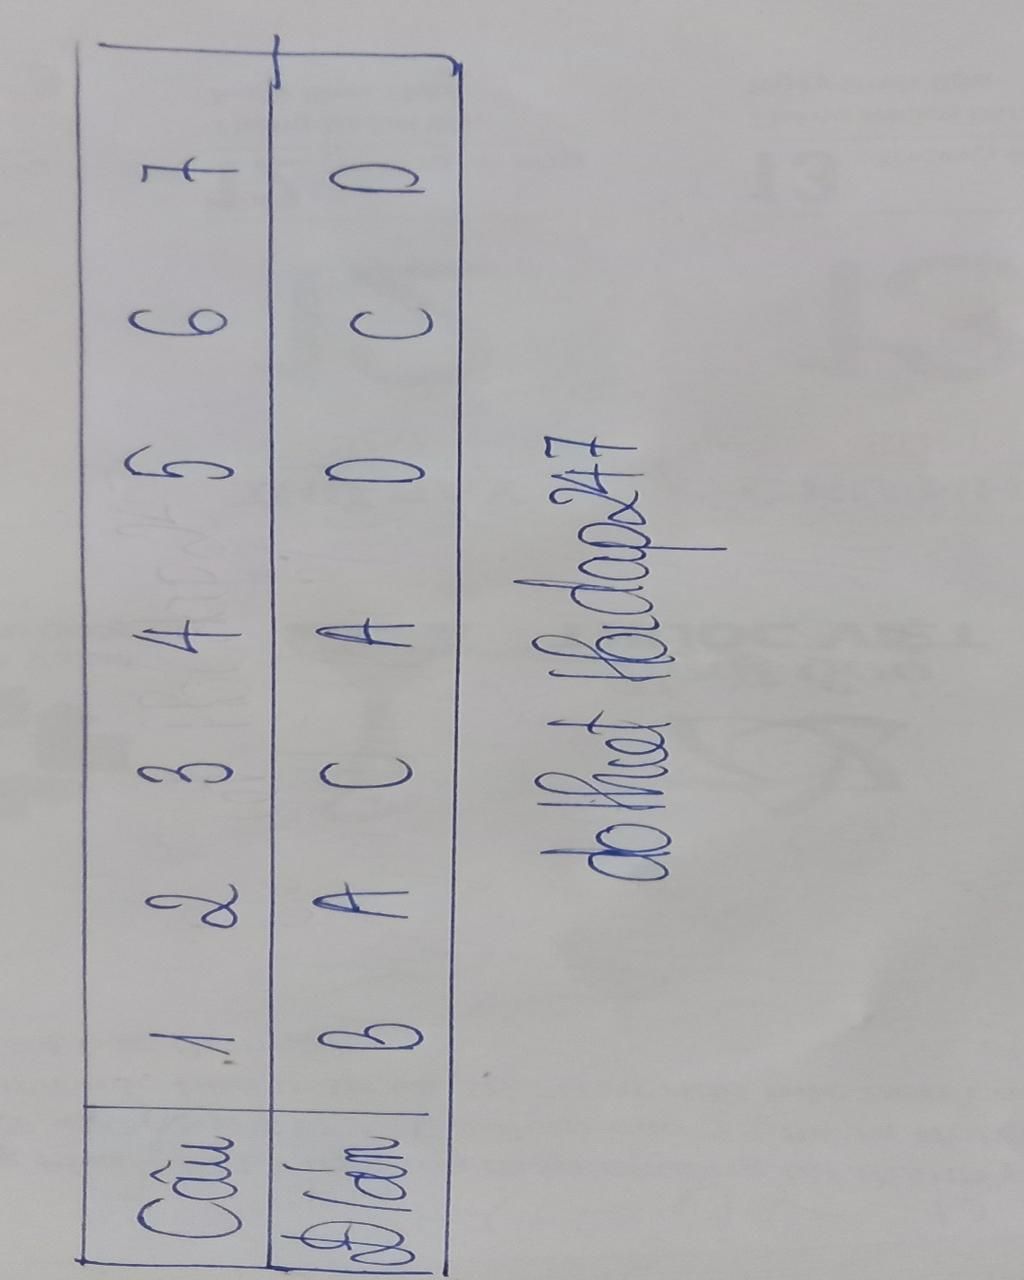 Câu 1 2 3 4 5 6 7
Đ/án B A C A D C D
dothuet Hoidap247